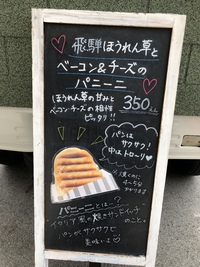 飛騨ほうれん草と
ベーコン&チーズの
パニーニ
ほうれん草の甘みと
ベーコン・チーズの相性
ピッタリ!!
350
パンは
サクサク!
中はトローリ
※焼くのに
4~5分
パニーニとは…?
イタリア風の焼きサンドイッチ
のこと。
パンがサクサクで
美味いよ